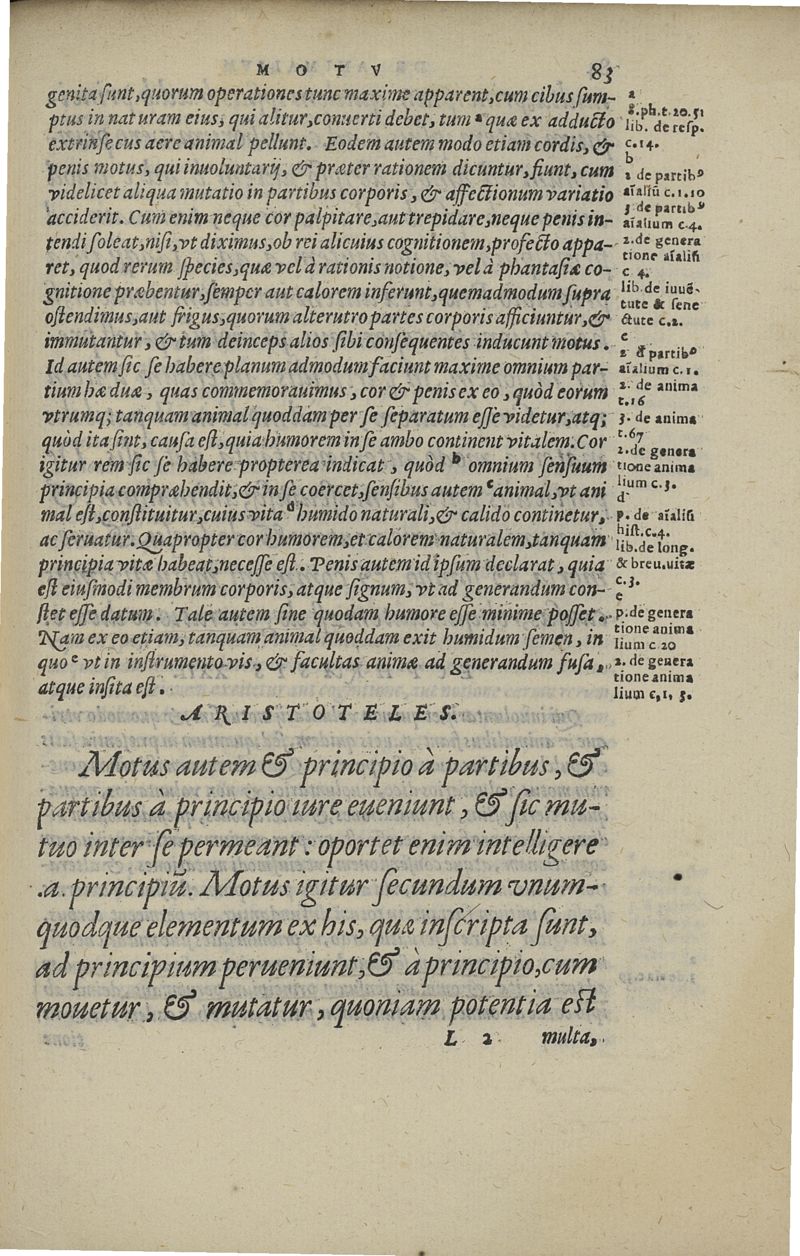 MOTV 83
genita ſunt, quorum operationes tunc maxime apparent, cum cibus ſum-
ptus in naturam eius, qui alitur, conuerti debet, tum ᵃ quæ ex adducto
extrinſecus aere animal pellunt. Eodem autem modo etiam cordis, &
penis motus, qui inuoluntarij, & præter rationem dicuntur, fiunt, cum
videlicet aliqua mutatio in partibus corporis, & affectionum variatio
acciderit. Cum enim neque cor palpitare, aut trepidare, neque penis in-
tendi ſoleat, niſi, vt diximus, ob rei alicuius cognitionem, profecto appa-
ret, quod rerum ſpecies, quæ vel à rationis notione, vel à phantaſiæ co-
gnitione præbentur, ſemper aut calorem inferunt, quemadmodum ſupra
oſtendimus, aut frigus, quorum alterutro partes corporis afficiuntur, &
immutantur, & tum deinceps alios ſibi conſequentes inducunt motus.
Id autem ſic ſe habere planum admodum faciunt maxime omnium par-
tium hæ duæ, quas commemorauimus, cor & penis ex eo, quòd eorum
vtrumq; tanquam animal quoddam per ſe ſeparatum eſſe videtur, atq;
quòd ita ſint, cauſa eſt, quia humorem in ſe ambo continent vitalem. Cor
igitur rem ſic ſe habere propterea indicat, quòd ᵇ omnium ſenſuum
principia compræhendit, & in ſe coercet, ſenſibus autem ᶜ animal, vt ani
mal eſt, conſtituitur, cuius vita ᵈ humido naturali, & calido continetur,
ac ſeruatur. Quapropter cor humorem, et calorem naturalem, tanquam
principia vitæ habeat, neceſſe eſt. Penis autem id ipſum declarat, quia
eſt eiuſmodi membrum corporis, atque ſignum, vt ad generandum con-
ſtet eſſe datum. Tale autem ſine quodam humore eſſe minime poſſet.
Nam ex eo etiam, tanquam animal quoddam exit humidum ſemen, in
quo ᵉ vt in inſtrumento vis, & facultas animæ ad generandum fuſa,
atque inſita eſt.
a
8. ph. t. 20. 51
lib. de reſp.
c. 14.
b
2 de partibꝰ
aĩaliũ c. 1. 10
3 de partibꝰ
aĩalium c. 4.
2. de genera
tione aĩaliũ
c 4.
lib. de iuuẽ-
tute & ſene
ctute c. 2.
c
2 ď partibꝰ
aĩalium c. 1.
2. de anima
t. 16
3. de anima
t. 67
2. de genera
tione anima
lium c. 3.
d
p. de aĩaliũ
hiſt. c. 4.
lib. de long.
& breu. uitæ
c. 3.
e
p. de genera
tione anima
lium c 20
2. de genera
tione anima
lium c, 1, 3.
ARISTOTELES.
Motus autem & principio à partibus, &
partibus à principio iure eueniunt, & ſic mu-
tuo inter ſe permeant: oportet enim intelligere
.a. principiũ. Motus igitur ſecundum vnum-
quodque elementum ex his, quæ inſcripta ſunt,
ad principium perueniunt, & à principio, cum
mouetur, & mutatur, quoniam potentia eſt
L 2 multa,